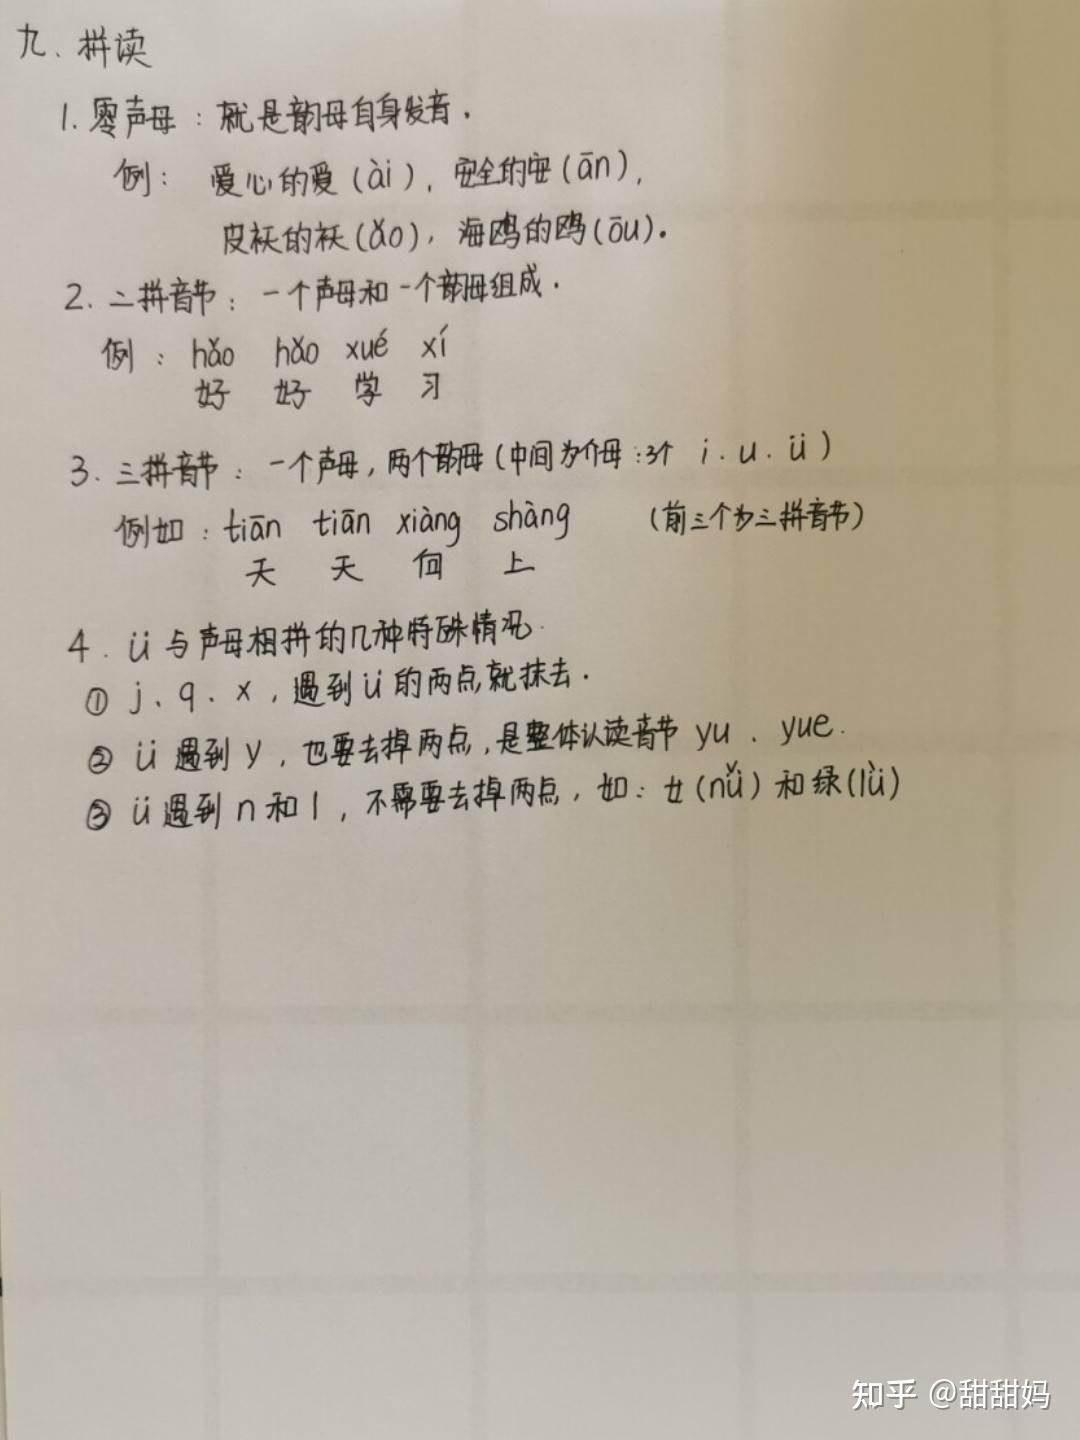 九、拼读
1. 零声母：就是韵母自身发音.
例： 爱心的爱(ài)，安全的安(ān)，
皮袄的袄(ǎo)，海鸥的鸥(ōu)。
2. 二拼音节：一个声母和一个韵母组成.
例： hǎo hǎo xué xí
好 好 学 习
3. 三拼音节：一个声母，两个韵母(中间为介母:3个 i . u . ü )
例如：tiān tiān xiàng shàng (前三个为三拼音节)
天 天 向 上
4. ü与声母相拼的几种特殊情况.
① j、q、x，遇到ü的两点就抹去.
② ü遇到y，也要去掉两点，是整体认读音节 yu 、yue.
③ ü遇到n和l，不需要去掉两点，如：女(nǚ)和绿(lǜ)
知乎 @甜甜妈